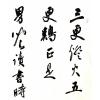 三更燈火五
更鷄正是
男兒讀書時